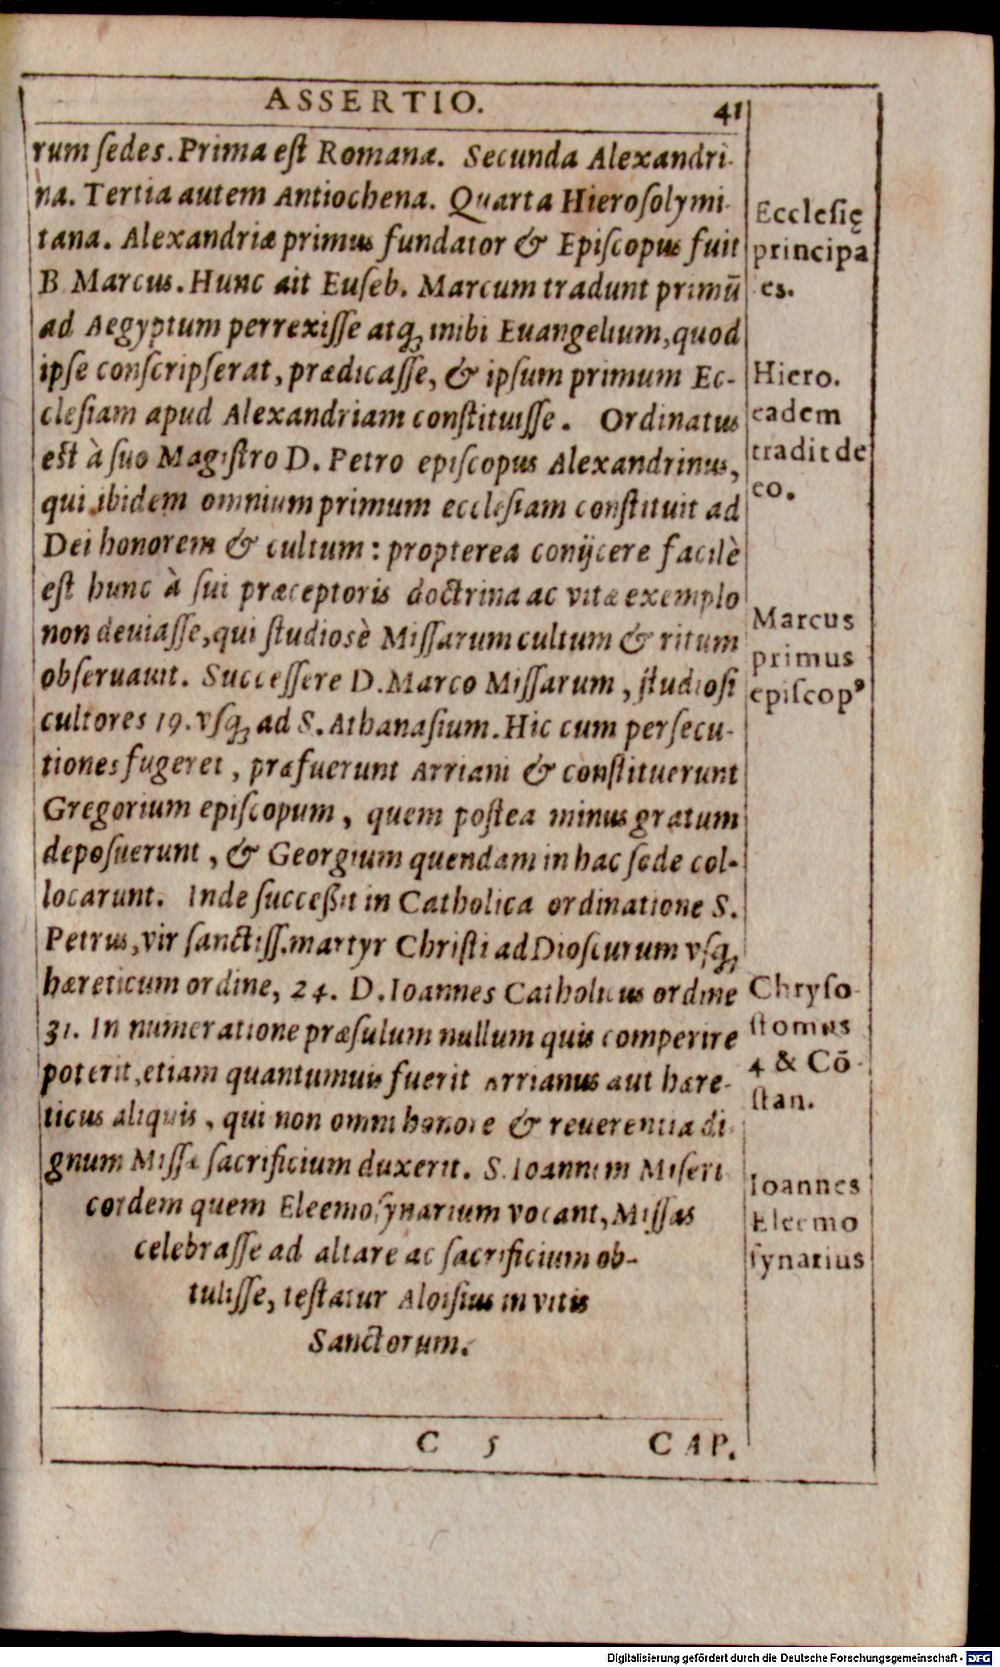 ASSERTIO. 41
rum ſedes. Prima eſt Romana. Secunda Alexandri-
na. Tertia autem Antiochena. Quarta Hieroſolymi-
tana. Alexandriæ primus fundator & Epiſcopus fuit
B Marcus. Hunc ait Euſeb. Marcum tradunt primū
ad Aegyptum perrexiſſe atq; inibi Euangelium, quod
ipſe conſcripſerat, prædicaſſe, & ipſum primum Ec-
cleſiam apud Alexandriam conſtituiſſe. Ordinatus
eſt à ſuo Magiſtro D. Petro epiſcopus Alexandrinus,
qui ibidem omnium primum eccleſiam conſtituit ad
Dei honorem & cultum: propterea conijcere facilè
eſt hunc à ſui præceptoris doctrina ac vitæ exemplo
non deuiaſſe, qui ſtudiosè Miſſarum cultum & ritum
obſeruauit. Succeſſere D. Marco Miſſarum, ſtudioſi
cultores 19. vſq; ad S. Athanaſium. Hic cum perſecu-
tiones fugeret, præfuerunt Arriani & conſtituerunt
Gregorium epiſcopum, quem poſtea minus gratum
depoſuerunt, & Georgium quendam in hac ſede col-
locarunt. Inde ſucceßit in Catholica ordinatione S.
Petrus, vir ſanctiſſ. martyr Chriſti ad Dioſcurum vſq;
hæreticum ordine, 24. D. Ioannes Catholicus ordine
31. In numeratione præſulum nullum quis comperire
poterit, etiam quantumuis fuerit Arrianus aut hære-
ticus aliquis, qui non omni honore & reuerentia di-
gnum Miſſæ ſacrificium duxerit. S. Ioannem Miſeri
cordem quem Eleemoſynarium vocant, Miſſas
celebraſſe ad altare ac ſacrificium ob-
tuliſſe, teſtatur Aloiſius in vitis
Sanctorum.
C 5 CAP.
Eccleſię
principa
es.
Hiero.
eadem
tradit de
eo.
Marcus
primus
epiſcopꝰ
Chryſo-
ſtomus
4 & Cō-
ſtan.
Ioannes
Eleemo
ſynarius
Digitalisierung gefördert durch die Deutsche Forschungsgemeinschaft - DFG